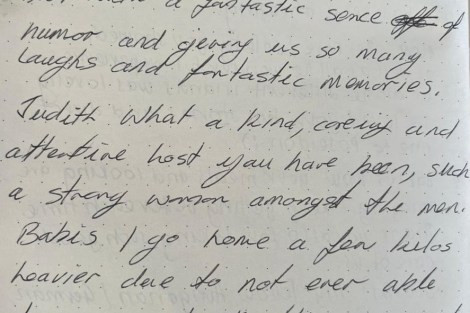 a fantastic sence of
humor and geving us so many
Laughs and fantastic memories.
Judith what a kind, careing and
attentive host you have been, such
a strong woman amongst the men.
Babis I go home a few kilos
heavier due to not ever able